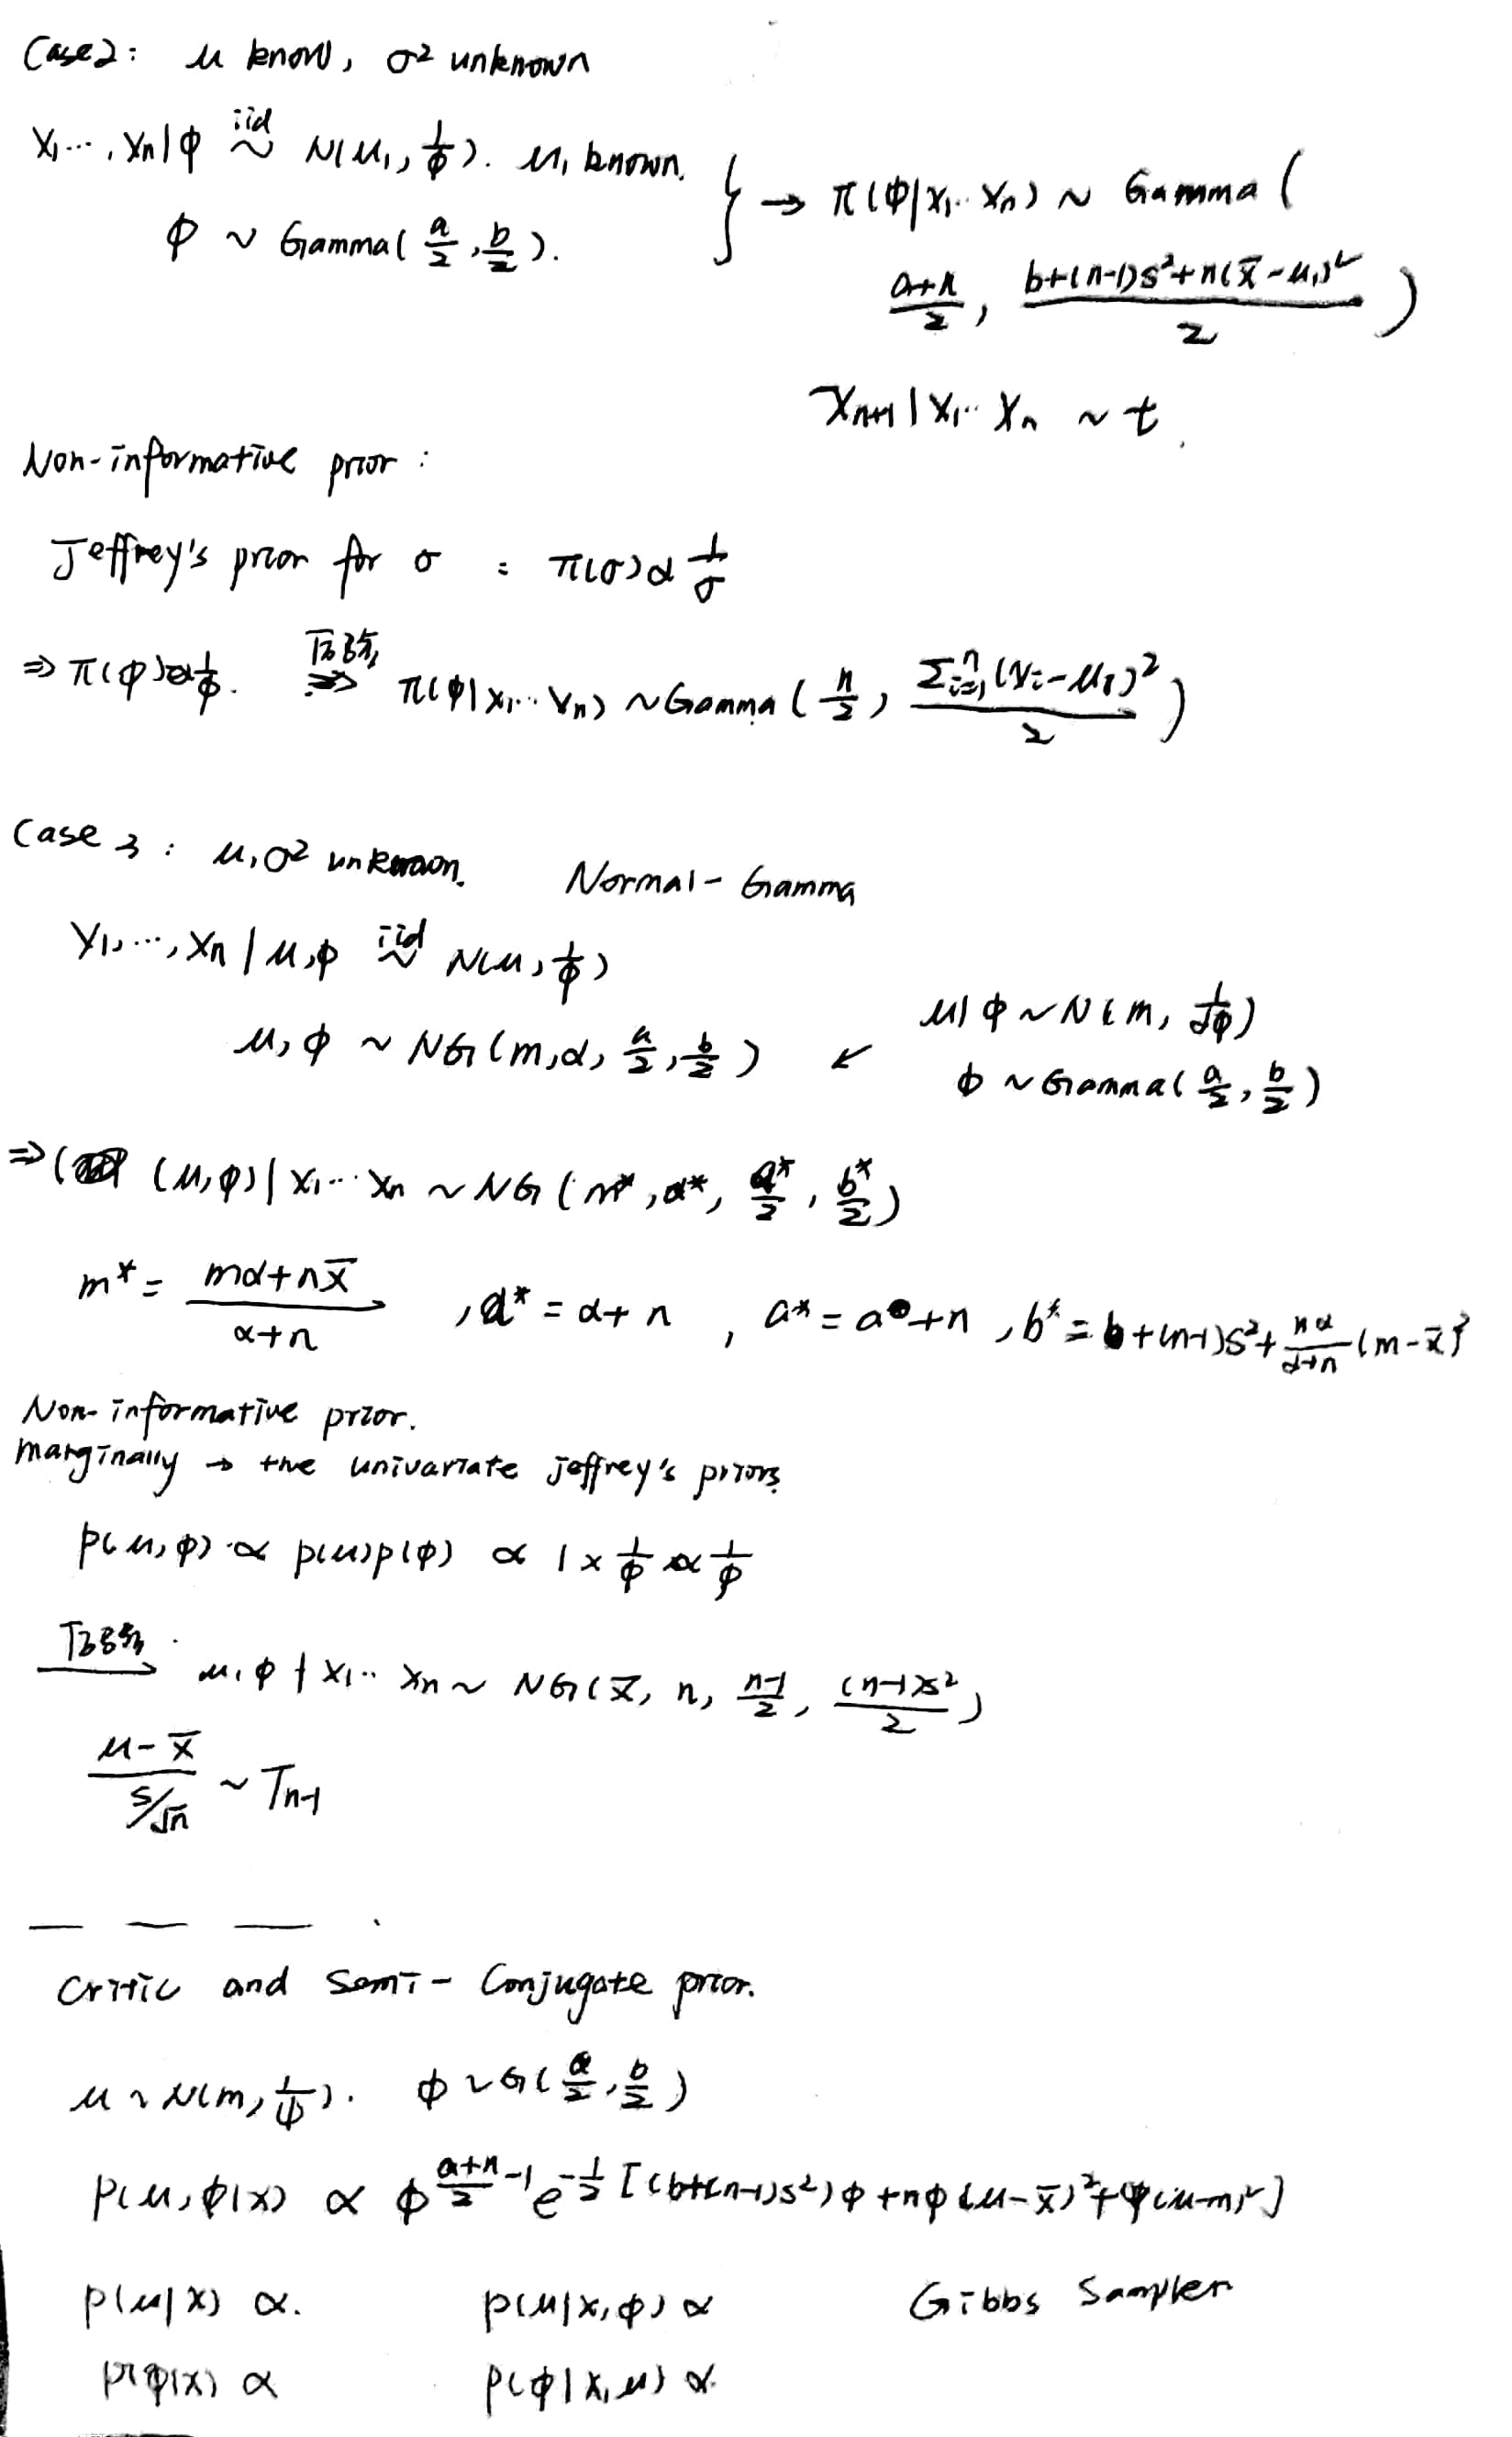 Case2: μ know, σ² unknown
X₁…, Xn|φ iid ~ N(μ₁, 1/φ). μ₁ known.
φ ~ Gamma(a/2, b/2).
} → π(φ|x₁..Xn) ~ Gamma (
(a+n)/2, (b+(n-1)s²+n(x̄-μ₁)²)/2 )
Xn+1|X₁..Xn ~ t.
Non-informative prior:
Jeffrey's prior for σ : π(σ)∝ 1/σ
⇒ π(φ)∝1/φ. ⇒ π(φ|x₁..xn) ~ Gamma (n/2, Σᵢ₌₁ⁿ(xᵢ-μ₁)²/2)
Case 3: μ,σ² unknown. Normal-Gamma
X₁,…,Xn | μ,φ iid ~ N(μ, 1/φ)
μ|φ ~ N(m, 1/αφ)
μ,φ ~ NG(m,α, a/2, b/2) ↙ φ ~ Gamma(a/2, b/2)
⇒ (μ,φ)|x₁…xn ~ NG(m*, α*, a*/2, b*/2)
m* = (mα+nx̄)/(α+n), α* = α+n, a* = a+n, b* = b+(n-1)s²+ nα/(α+n) (m-x̄)²
Non-informative prior.
marginally → the univariate jeffrey's priors
p(μ,φ) ∝ p(μ)p(φ) ∝ 1 × 1/φ ∝ 1/φ
→ μ,φ | x₁..xn ~ NG(x̄, n, (n-1)/2, (n-1)s²/2)
(μ-x̄)/(s/√n) ~ Tn-1
Critic and Semi-Conjugate prior.
μ ~ N(m, 1/ψ). φ ~ G(a/2, b/2)
p(μ,φ|x) ∝ φ^((a+n)/2 -1) e^(-1/2 [(b+(n-1)s²)φ + nφ(μ-x̄)²+ψ(μ-m)²])
p(μ|x) ∝. p(μ|x,φ) ∝ Gibbs Sampler
p(φ|x) ∝ p(φ|x,μ) ∝.